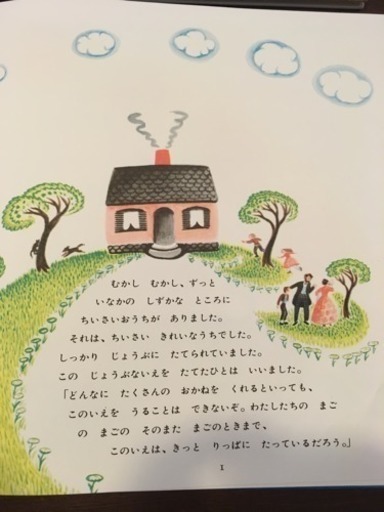 むかし むかし、ずっと
いなかの しずかな ところに
ちいさいおうちが ありました。
それは、ちいさい きれいなうちでした。
しっかり じょうぶに たてられていました。
この じょうぶないえを たてたひとは いいました。
「どんなに たくさんの おかねを くれるといっても、
このいえを うることは できないぞ。わたしたちの まご
の まごの そのまた まごのときまで、
このいえは、きっと りっぱに たっているだろう。」
1